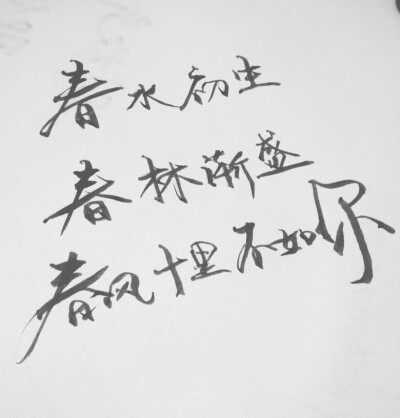 春水初生
春林渐盛
春风十里不如你